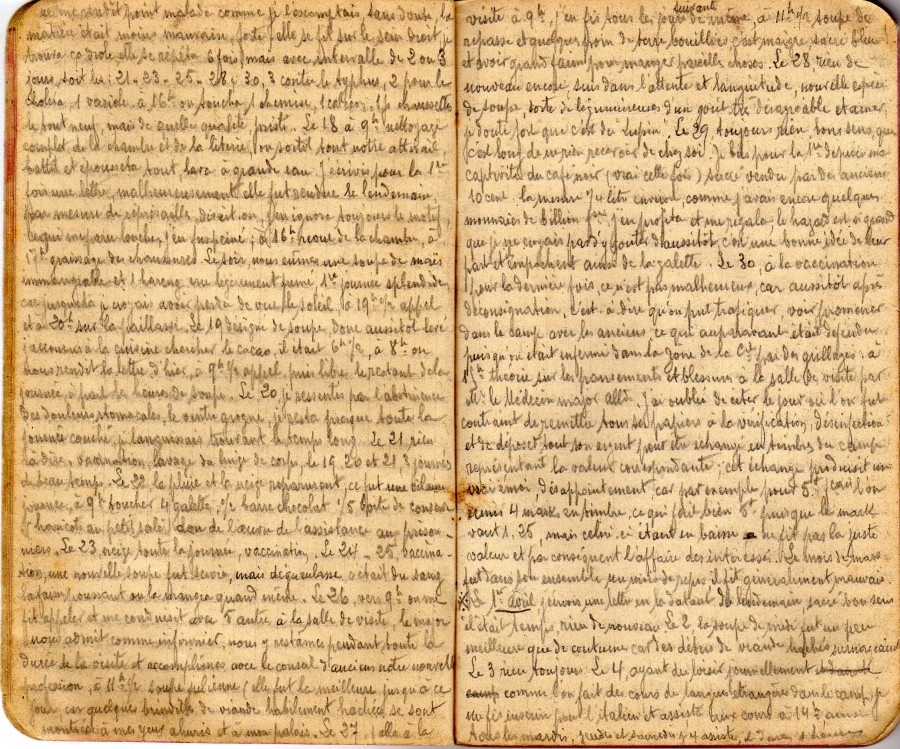 ne me rendit point malade comme je l'escomptais sans doute, la
matière était moins mauvaise, forte, elle se fit sur le sein droit je
trouvai ça drôle elle se répéta 6 fois, mais avec intervalle de 2 ou 3
jours soit les : 21 - 23 - 25 - 28 & 30, 3 contre le typhus, 2 pour le
choléra, 1 variole. à 16h on touche, 1 chemise, 1 caleçon, 1 p. chaussettes
le tout neuf, mais de quelle qualité, juste. Le 18 à 9h nettoyage
complet de la chambre et de la literie, l'on sortit tout notre attirail
battit et épousseta tout, lava à grande eau. J'écrivis pour la 1ère
fois une lettre, malheureusement elle fut rendue le lendemain
par mesure de représailles, disait-on, j'en ignore toujours le motif
ce qui me parut louche, à 16h revue de la chambre, à
17h graissage des chaussures. Le soir, nous eûmes une soupe de maïs
immangeable et 1 hareng légèrement fumé, 1ère journée splendide,
car jusque là je croyais avoir perdu de vue le soleil, à 19h ½ appel
et à 20h sur la paillasse. Le 19 désigné de soupe, donc aussitôt levé
j'accourus à la cuisine chercher le cacao, il était 6h ½, à 8h on
nous rendit la lettre d'hier, à 9h ½ appel, puis libre le restant de la
journée, à part les heures de soupe. Le 20 je ressentis par l'abstinence
des douleurs stomacales, le ventre grogne, je restai presque toute la
journée couché, je languissais trouvant le temps long. Le 21, rien
à dire, vaccination, lavage du linge de corps, le 19, 20 et 21, 3 journées
de beau temps. Le 22, la pluie et la neige reparurent, ce fut une vilaine
journée, à 9h toucher 4 galettes, ½ barre chocolat, 1/5 boîte de conserve
(haricots au petit salé) don de l'œuvre de l'assistance aux prison-
niers. Le 23, neige toute la journée, vaccination. Le 24 - 25, vaccina-
tion, une nouvelle soupe fut servie, mais dégueulasse, c'était du sang
on la mangea quand même. Le 26, vers 9h on me
fit appeler et me conduisit avec 5 autres, à la salle de visite, le major
nous admit comme infirmier, nous y restâmes pendant toute la
durée de la visite et accomplîmes avec le conseil d'anciens notre nouvelle
profession, à 11h ½ soupe julienne (elle fut la meilleure jusqu'à ce
jour car quelques brindilles de viande habilement hachées se sont
montrées à mes yeux ahuris et à mon palais. Le 27, j'alla à la
visite à 9h, j'en fis tous les jours suivants de même, à 11h ½ soupe de
repasse et quelques pom de terre bouillies, c'est maigre, sacré bleu
et avoir grand faim pour manger pareilles choses. Le 28 rien de
nouveau encore, suis dans l'attente et languitude, nouvelle espèce
de soupe, sorte de légumineuses d'un goût très désagréable et amer,
je doute fort que c'est du lupin. Le 29 toujours rien, bon sens, que
c'est long de ne rien recevoir de chez soi. Je bus pour la 1ère depuis ma
captivité du café noir (vrai cette fois) sacré vendu par des anciens
10 cent. la mesure ¼ litre environ, comme j'avais encore quelques
monnaies de billon frse j'en profitai et me régalai, le hazard est si grand
que je ne croyais pas d'y goûter d'aussitôt, c'est une bonne idée de leur
part et empochent ainsi de la galette. Le 30, à la vaccination
pour la dernière fois, ce n'est pas malheureux, car aussitôt après
déconsignation, c'est à dire qu'on put trafiquer, voir promener
dans le camp avec les anciens ce qui auparavant était défendu
puisqu'on était enfermé dans la zone de la Cie par des grillages. à
15h théorie sur les pansements et blessures à la salle de visite par
Mr le Médecin major alld. J'ai oublié de citer le jour où l'on fut
contraint de remettre tous ses papiers à la vérification, désinfection
et de déposer tout son argent pour être échangé en timbres du camp
représentant la valeur correspondante, cet échange produisit un
vrai émoi, désappointement, car par exemple pour 5f l'on
remis 4 mark en timbre, ce qui fait bien 5f puisque le mark
vaut 1,25, mais celui-ci étant en baisse ne fit pas la juste
valeur et par conséquent l'affaire des intéressés. Le mois de mars
fut dans son ensemble un mois de repos, il fit généralement mauvais.
Le 1er avril j'écrivis une lettre en le datant du lendemain, sacré bon sens
il était temps, rien de nouveau. Le 2, la soupe de midi fut un peu
meilleure que de coutume car des débris de viande hachés
Le 3 rien toujours. Le 4, ayant du loisir journellement
comme l'on fait des cours de langues étrangères dans le camp, je
me fis inscrire pour l'italien et assistai aux cours à 14h ainsi
tous les mardis, jeudis et samedis